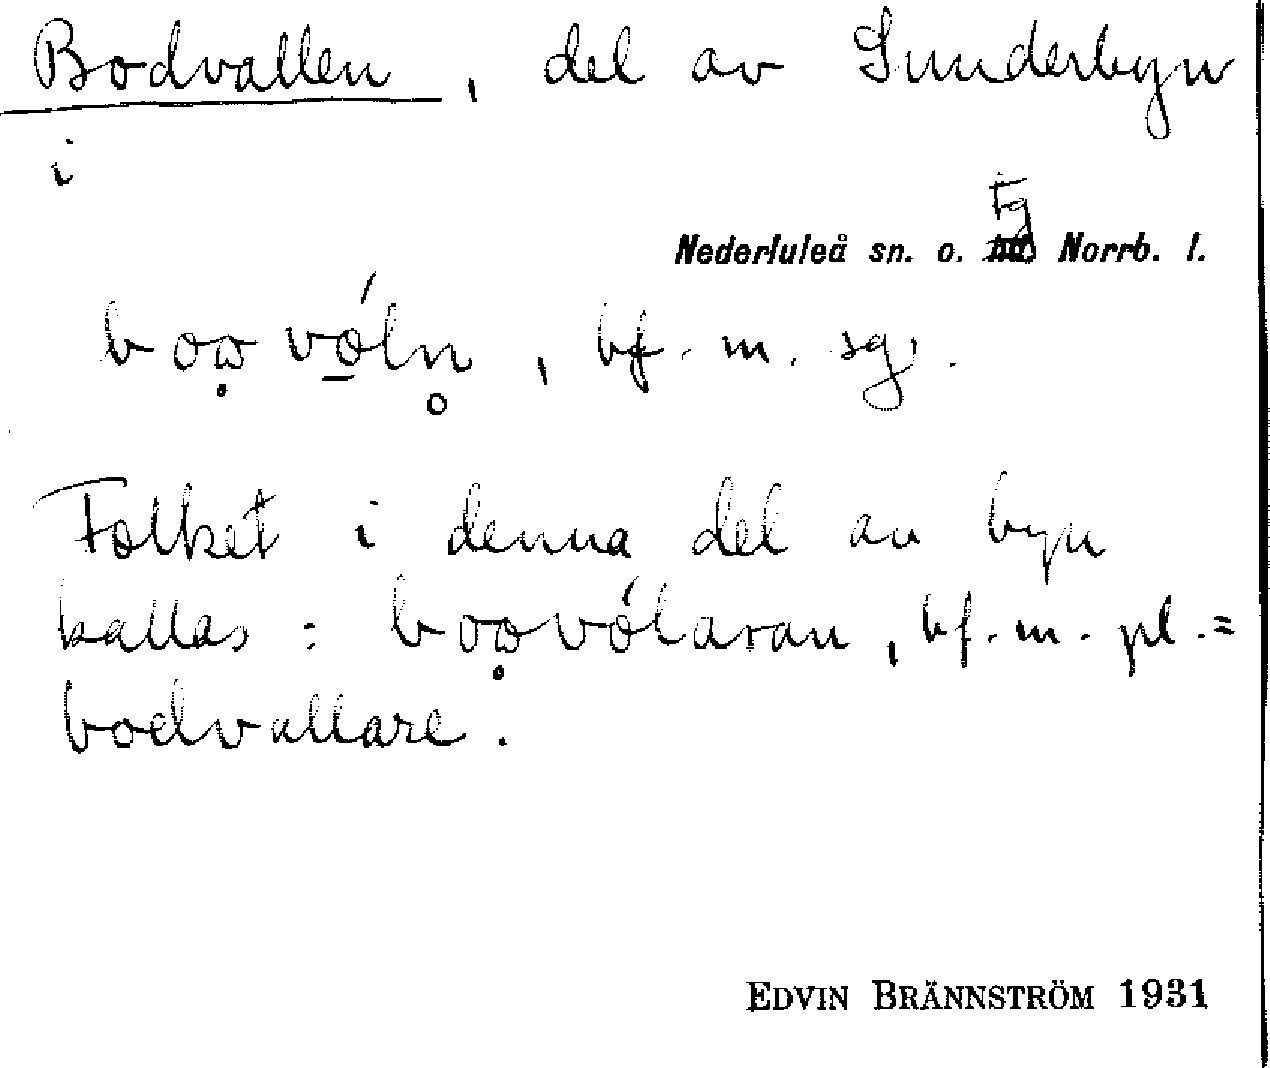 Bodvallen, del av Sunderbyn
i
Nederluleå sn. o. tg Norrb. l.
, bf. m. sg.
Folket i denna del av byn
kallas: , bf. m. pl. =
bodvallare.
EDVIN BRÄNNSTRÖM 1931